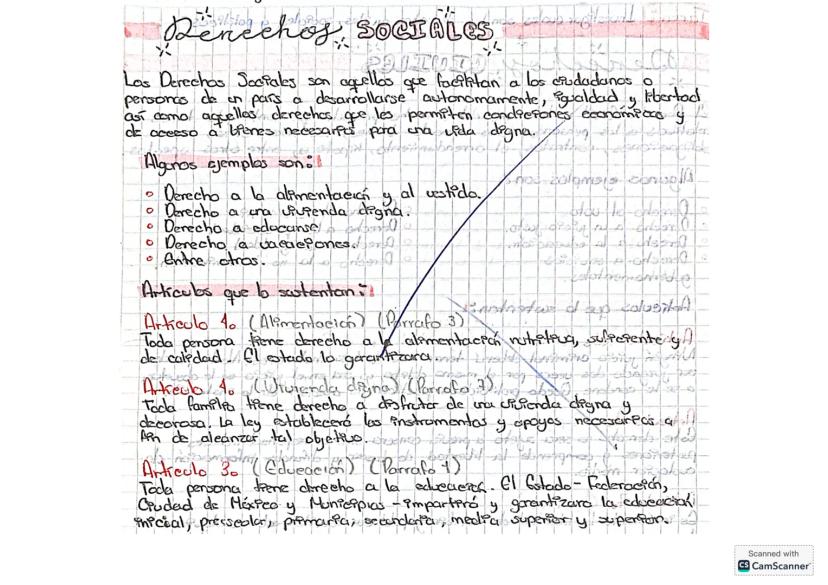 Derechos SOCIALES
Los Derechos Sociales son aquellos que facilitan a los ciudadanos o
personas de un país a desarrollarse autonomamente, igualdad y libertad
así como aquellos derechos que les permiten condiciones económicas y
de acceso a bienes necesarios para una vida digna.
Algunos ejemplos son:
Derecho a la alimentación y al vestido.
Derecho a una vivienda digna.
Derecho a educarse.
Derecho a vacaciones.
Entre otros.
Artículos que lo sustentan:
Artículo 4o (Alimentación) (Párrafo 3)
Toda persona tiene derecho a la alimentación nutritiva, suficiente y
de calidad. El estado lo garantizara.
Artículo 4o (Vivienda digna) (Párrafo 7)
Toda familia tiene derecho a disfrutar de una vivienda digna y
decorosa. La ley establecerá los instrumentos y apoyos necesarios a
fin de alcanzar tal objetivo.
Artículo 3o (Educación) (Párrafo 1)
Toda persona tiene derecho a la educación. El Estado-Federación,
Ciudad de México y Municipios-impartirá y garantizara la educación
inicial, preescolar, primaria, secundaria, media superior y superior.
Scanned with
CS CamScanner